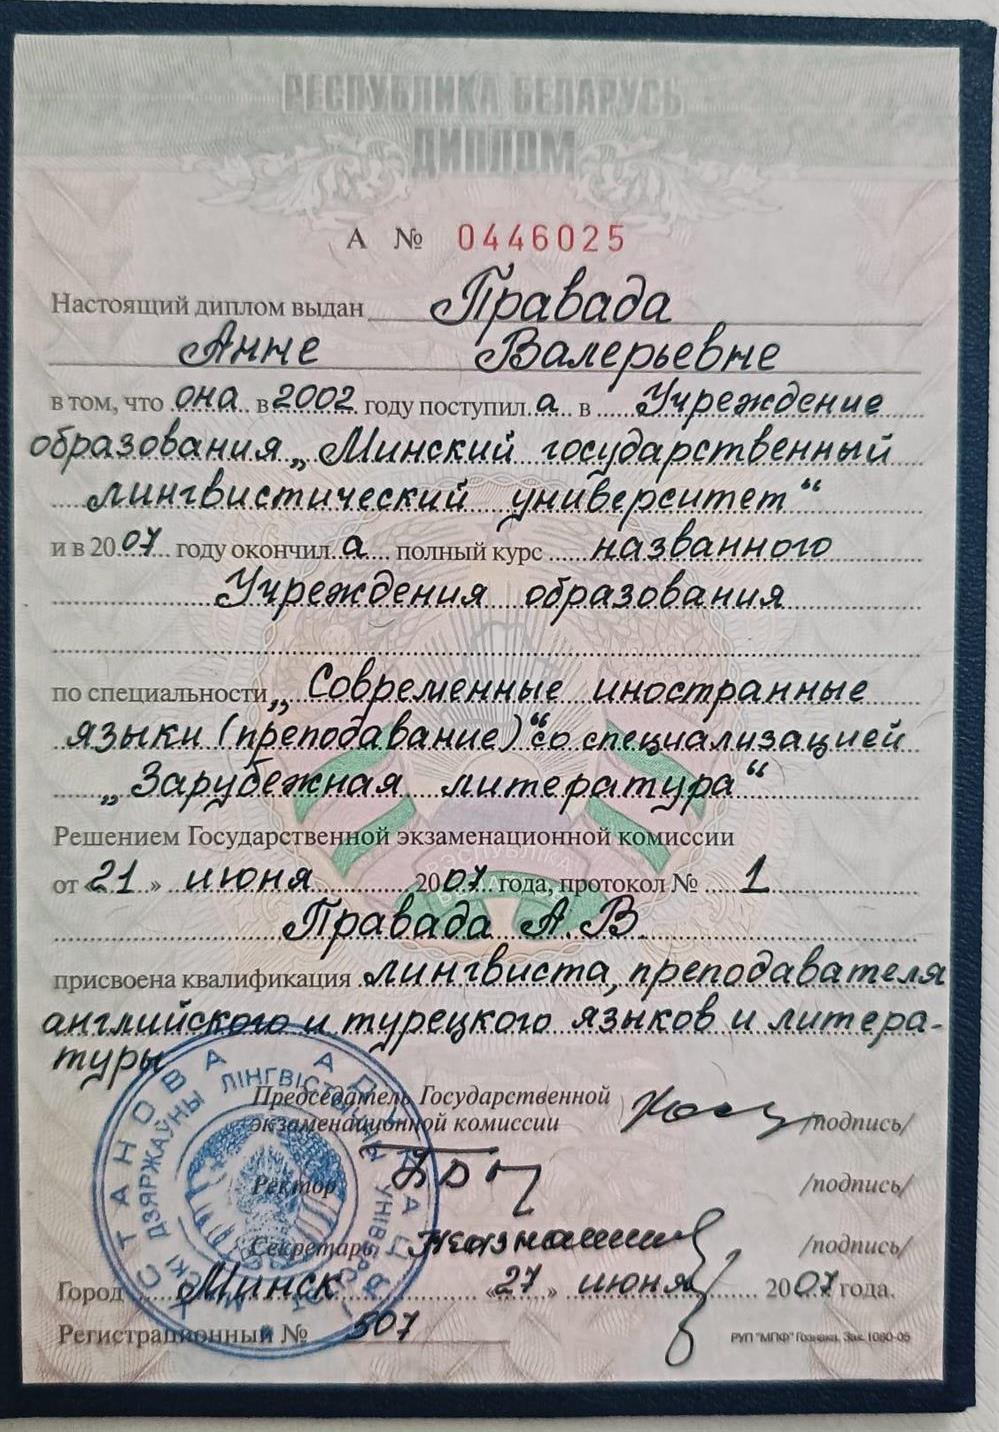 РЕСПУБЛИКА БЕЛАРУСЬ
ДИПЛОМ
А № 0446025
Настоящий диплом выдан Правада
Анне Валерьевне
в том, что она в 2002 году поступила в Учреждение
образования „Минский государственный
лингвистический университет“
и в 2007 году окончила полный курс названного
Учреждения образования
по специальности „Современные иностранные
языки (преподавание)“ со специализацией
„Зарубежная литература“
Решением Государственной экзаменационной комиссии
от «21» июня 2007 года, протокол № 1
Правада А. В.
присвоена квалификация лингвиста, преподавателя
английского и турецкого языков и литера-
туры
Председатель Государственной
экзаменационной комиссии /подпись/
Ректор /подпись/
Секретарь /подпись/
Город Минск «27» июня 2007 года.
Регистрационный № 507
РУП "МПФ" Гознака. Зак. 1080-05